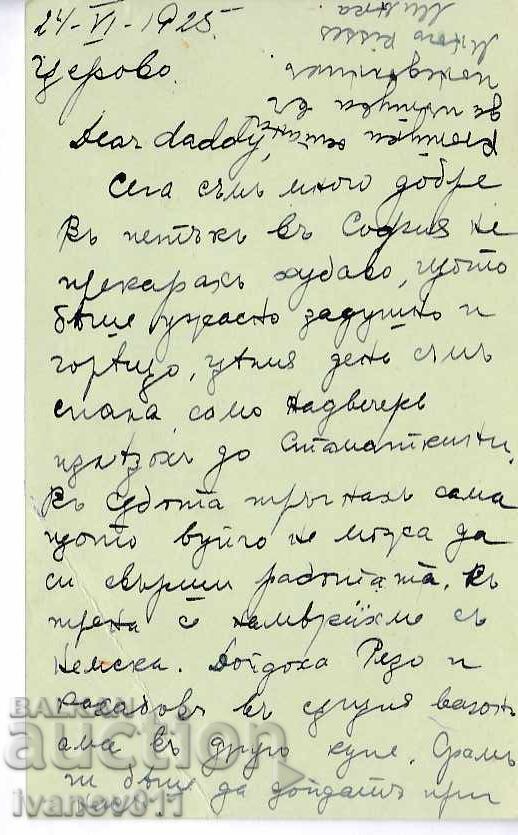 24-VI-1925.
Церово.
Dear daddy,
Сега съмъ много добре
Въ петъкъ въ София не
прекарахъ хубаво, щото
бѣше ужасно задушно и
горѣщо, цѣлия день съмъ
спала, само надвечеръ
излязохъ до
Въ събота тръгнахъ сама
щото вуйчо не можа да
си свърши работата. Въ
трена се намѣрихме съ
Немска. Дойдоха Резо и
въ другия вагонъ
ама въ друго купе. Срамъ
ги бѣше да дойдатъ при
Много kisses
Милка
BALKAN
auction
ivanov011